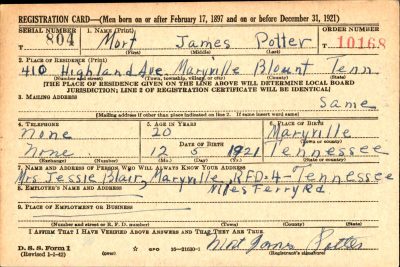 REGISTRATION CARD—(Men born on or after February 17, 1897 and on or before December 31, 1921)
SERIAL NUMBER
1. NAME (Print)
ORDER NUMBER
T 804
Mort James Potter
T 10168
(First) (Middle) (Last)
2. PLACE OF RESIDENCE (Print)
410 Highland Ave. Maryville Blount Tenn.
(Number and street) (Town, township, village, or city) (County) (State)
[THE PLACE OF RESIDENCE GIVEN ON THE LINE ABOVE WILL DETERMINE LOCAL BOARD
JURISDICTION; LINE 2 OF REGISTRATION CERTIFICATE WILL BE IDENTICAL]
3. MAILING ADDRESS
Same
[Mailing address if other than place indicated on line 2. If same insert word same]
4. TELEPHONE
5. AGE IN YEARS
6. PLACE OF BIRTH
None
20
Maryville
DATE OF BIRTH
(Town or county)
None
12 5 1921
Tennessee
(Exchange) (Number)
(Mo.) (Day) (Yr.)
(State or country)
7. NAME AND ADDRESS OF PERSON WHO WILL ALWAYS KNOW YOUR ADDRESS
Mrs Jessie Blair, Maryville, RFD.4-Tennessee
8. EMPLOYER'S NAME AND ADDRESS
Niles Ferry Rd
9. PLACE OF EMPLOYMENT OR BUSINESS
(Number and street or R. F. D. number) (Town) (County) (State)
I AFFIRM THAT I HAVE VERIFIED ABOVE ANSWERS AND THAT THEY ARE TRUE.
D. S. S. Form 1
(Revised 1-1-42)
(over)
16—21630-1
Mort James Potter
(Registrant's signature)